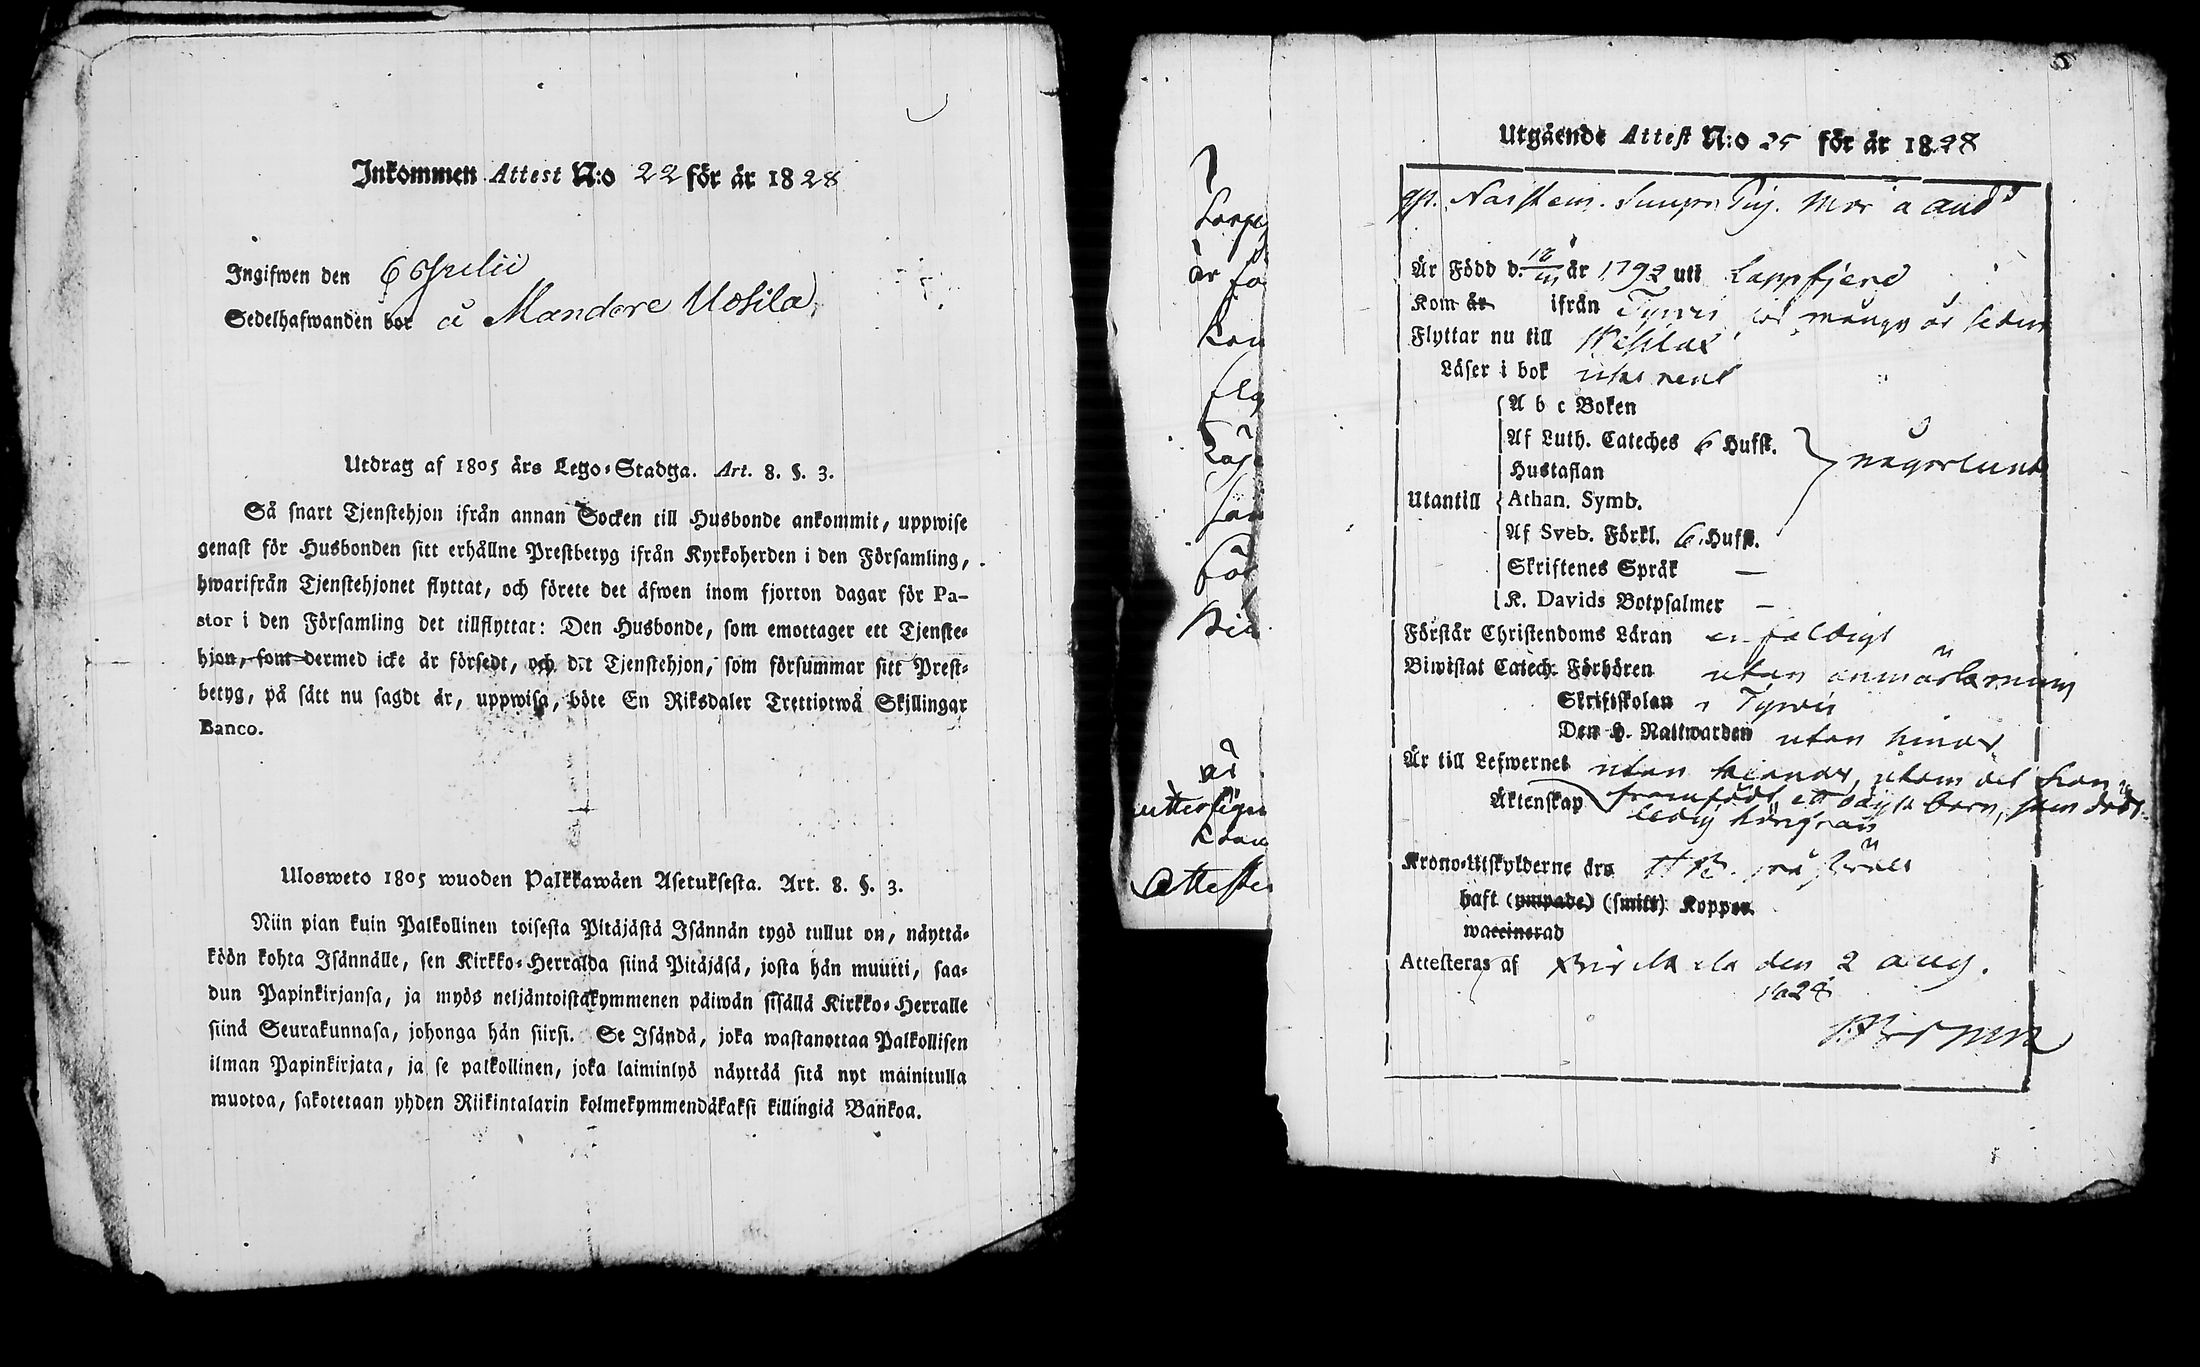 Inkommen Attest N:o 22 för år 1828
Ingifwen den 6 Julii
Sedelhafwanden bor å Mandore Uosila
Utdrag af 1805 års Lego-Stadga. Art. 8. §. 3.
Så snart Tjenstehjon ifrån annan Socken till Husbonde ankommit, uppwise
genast för Husbonden sitt erhållne Prestbetyg ifrån Kyrkoherden i den Församling,
hwarifrån Tjenstehjonet flyttat, och förete det äfwen inom fjorton dagar för Pa-
stor i den Församling det tillflyttat: Den Husbonde, som emottager ett Tjenste-
hjon, som dermed icke är försedt, och det Tjenstehjon, som försummar sitt Prest-
betyg, på sätt nu sagdt är, uppwisa, böte En Riksdaler Trettiotwå Skillingar
Banco.
Ulosweto 1805 wuoden Palkkawäen Asetuksesta. Art. 8. §. 3.
Niin pian kuin Palkollinen toisesta Pitäjästä Isännän tygö tullut on, näyttä-
köön kohta Isännälle, sen Kirkko-Herralda siinä Pitäjäsä, josta hän muutti, saa-
dun Papinkirjansa, ja myös neljäntoistakymmenen päiwän sisällä Kirkko-Herralle
siinä Seurakunnasa, johonga hän siirsi. Se Isändä, joka wastanottaa Palkollisen
ilman Papinkirjata, ja se palkollinen, joka laiminlyö näyttää sitä nyt mainitulla
muotoa, sakotetaan yhden Riikintalarin kolmekymmendäkaksi killingiä Bankoa.
är
Attester
Utgående Attest N:o 25 för år 1828
Är Född d. år 1792 uti Lappfjerd
Kom år ifrån Tyrvis för många år sedan
Flyttar nu till
Läser i bok utan rent
A b c Boken
Af Luth. Cateches 6 Hufst.
Hustaflan
någorlunda
Utantill Athan. Symb.
Af Sveb. Förkl. 6 Hufst.
Skriftenes Språk —
K. Davids Botpsalmer —
Förstår Christendoms Läran enfaldigt
Biwistat Catech. Förhören utan anmärkning
Skriftskolan i Tyrvis
Den H. Nattwarden utan hinder
Är till Lefwernet utan klander, utom det hon
framfödt ett oägta barn, som dödt.
Äktenskap ledig hängran
Krono-Utskylderne äro
haft (ympade) (smitt) Koppor
waccinerad
Attesteras af Birkkala den 2 aug.
1828